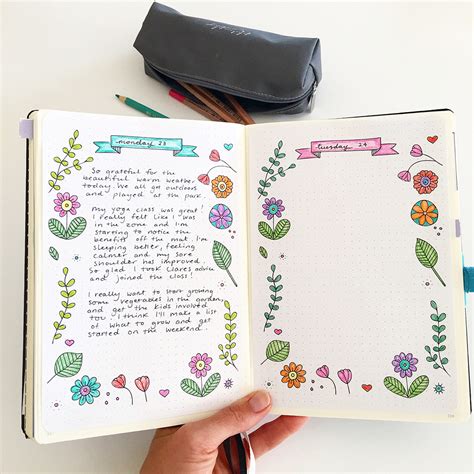 monday 23
So grateful for the
beautiful warm weather
today. We all got outdoors
and played at the park.
My yoga class was great!
I really felt like I was
in the zone and I'm
starting to notice the
benefits off the mat. I'm
sleeping better, feeling
calmer and my sore
shoulder has improved.
So glad I took Clares advice
and joined the class!
I really want to start growing
some vegetables in the garden,
and get the kids involved
too. I think I'll make a list
of what to grow and get
started on the weekend...
tuesday 24